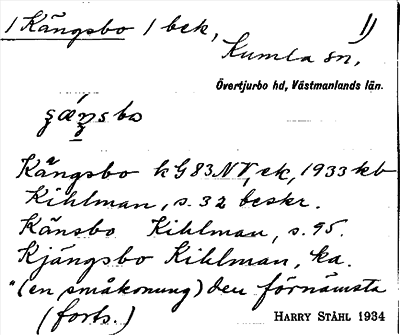 1 Kängsbo 1 bek, 1)
Kumla sn,
Övertjurbo hd, Västmanlands län.
Kängsbo kG83NV, ek, 1933 kb
Kihlman, s. 32 beskr.
Känsbo Kihlman, s. 95.
Kjängsbo Kihlman, ka.
"(en småkonung) den förnämsta
(forts.) HARRY STÅHL 1934